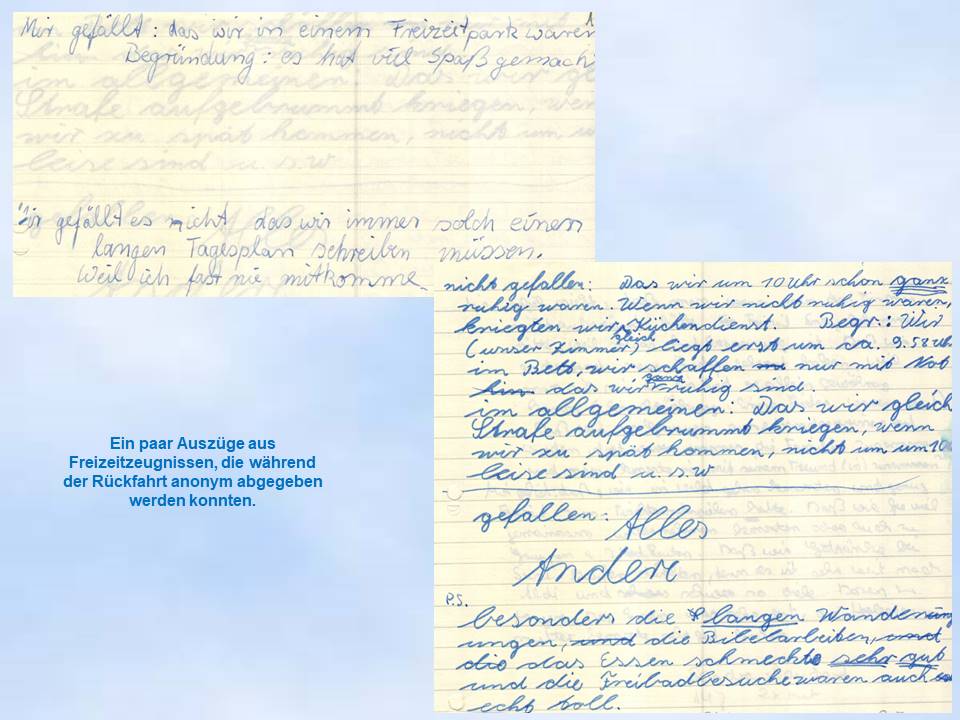 Mir gefällt: das wir in einem Freizeitpark waren
Begründung: es hat viel Spaß gemach
Mir gefällt es nicht das wir immer solch einen
langen Tagesplan schreiben müssen.
Weil ich fast nie mitkomme
Ein paar Auszüge aus
Freizeitzeugnissen, die während
der Rückfahrt anonym abgegeben
werden konnten.
nicht gefallen: Das wir um 10 Uhr schon ganz
ruhig waren. Wenn wir nicht ruhig waren,
kriegten wir gleich Küchendienst. Begr.: Wir
(unser Zimmer) liegt erst um ca. 9.58 Uhr
im Bett, wir schaffen nur mit Not
das wir ganz ruhig sind.
im allgemeinen: Das wir gleich
Strafe aufgebrummt kriegen, wenn
wir zu spät kommen, nicht um um 10
leise sind u. s. w
gefallen: Alles
Andere
P.S.
besonders die langen Wanderung
ungen, und die Bibelarbeiten, und
die das Essen schmeckte sehr gut
und die Freibadbesuche waren auch
echt toll.